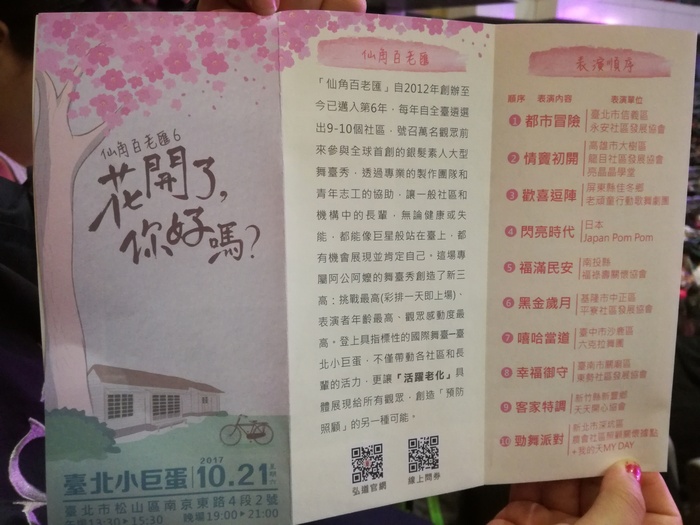 仙角百老匯6
花開了,
你好嗎?
臺北小巨蛋
2017
10.21
星期六
臺北市松山區南京東路4段2號
午場13:30▶15:30 晚場19:00▶21:00
仙角百老匯
「仙角百老匯」自2012年創辦至
今已邁入第6年,每年自全臺遴選
出9-10個社區,號召萬名觀眾前
來參與全球首創的銀髮素人大型
舞臺秀,透過專業的製作團隊和
青年志工的協助,讓一般社區和
機構中的長輩,無論健康或失
能,都能像巨星般站在臺上,都
有機會展現並肯定自己。這場專
屬阿公阿嬤的舞臺秀創造了新三
高:挑戰最高(彩排一天即上場)、
表演者年齡最高、觀眾感動度最
高。登上具指標性的國際舞臺—臺
北小巨蛋,不僅帶動各社區和長
輩的活力,更讓「活躍老化」具
體展現給所有觀眾,創造「預防
照顧」的另一種可能。
弘道官網
線上問卷
表演順序
順序 表演內容 表演單位
1 都市冒險 臺北市信義區
永安社區發展協會
2 情竇初開 高雄市大樹區
龍目社區發展協會
亮晶晶學堂
3 歡喜逗陣 屏東縣佳冬鄉
老頑童行動歌舞劇團
4 閃亮時代 日本
Japan Pom Pom
5 福滿民安 南投縣
福祿壽關懷協會
6 黑金歲月 基隆市中正區
平寮社區發展協會
7 嘻哈當道 臺中市沙鹿區
六克拉舞團
8 幸福御守 臺南市關廟區
東勢社區發展協會
9 客家特調 新竹縣新豐鄉
天天開心協會
10 勁舞派對 新北市深坑區
農會社區照顧關懷據點
+我的天MY DAY